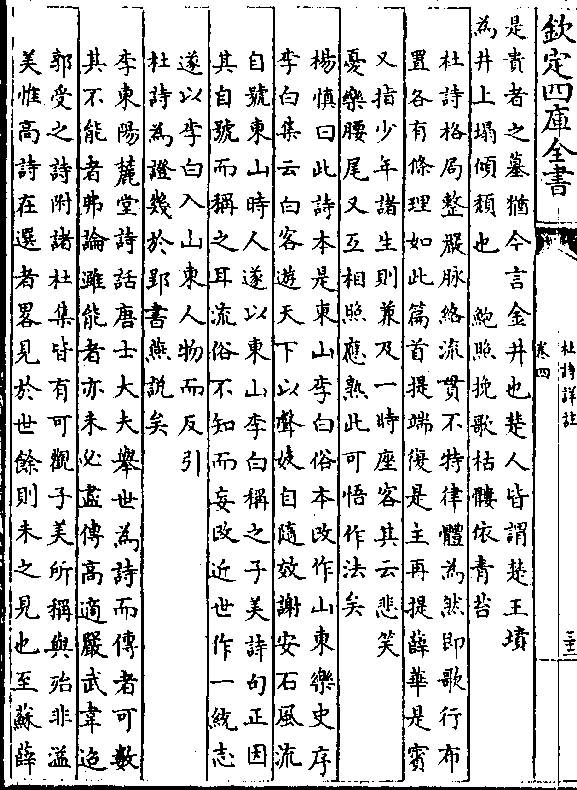 欽定四庫全書
杜詩詳註
卷四
是貴者之墓猶今言金井也楚人皆謂楚王墳
為井上塌傾頹也 鮑照挽歌枯髏依青苔
杜詩格局整嚴脉絡流貫不特律體為然即歌行布
置各有條理如此篇首提端復是主再提薛華是賓
又指少年諸生則兼及一時座客其云悲笑
憂樂腰尾又互相照應熟此可悟作法矣
楊慎曰此詩本是東山李白俗本改作山東樂史序
李白集云白客遊天下以聲妓自隨效謝安石風流
自號東山時人遂以東山李白稱之子美詩句正因
其自號而稱之耳流俗不知而妄改近世作一統志
遂以李白入山東人物而反引
杜詩為證幾於郢書燕說矣
李東陽麓堂詩話唐士大夫舉世為詩而傳者可數
其不能者弗論雖能者亦未必盡傳高適嚴武韋迢
郭受之詩附諸杜集皆有可觀子美所稱與殆非溢
美惟高詩在選者畧見於世餘則未之見也至蘇薛